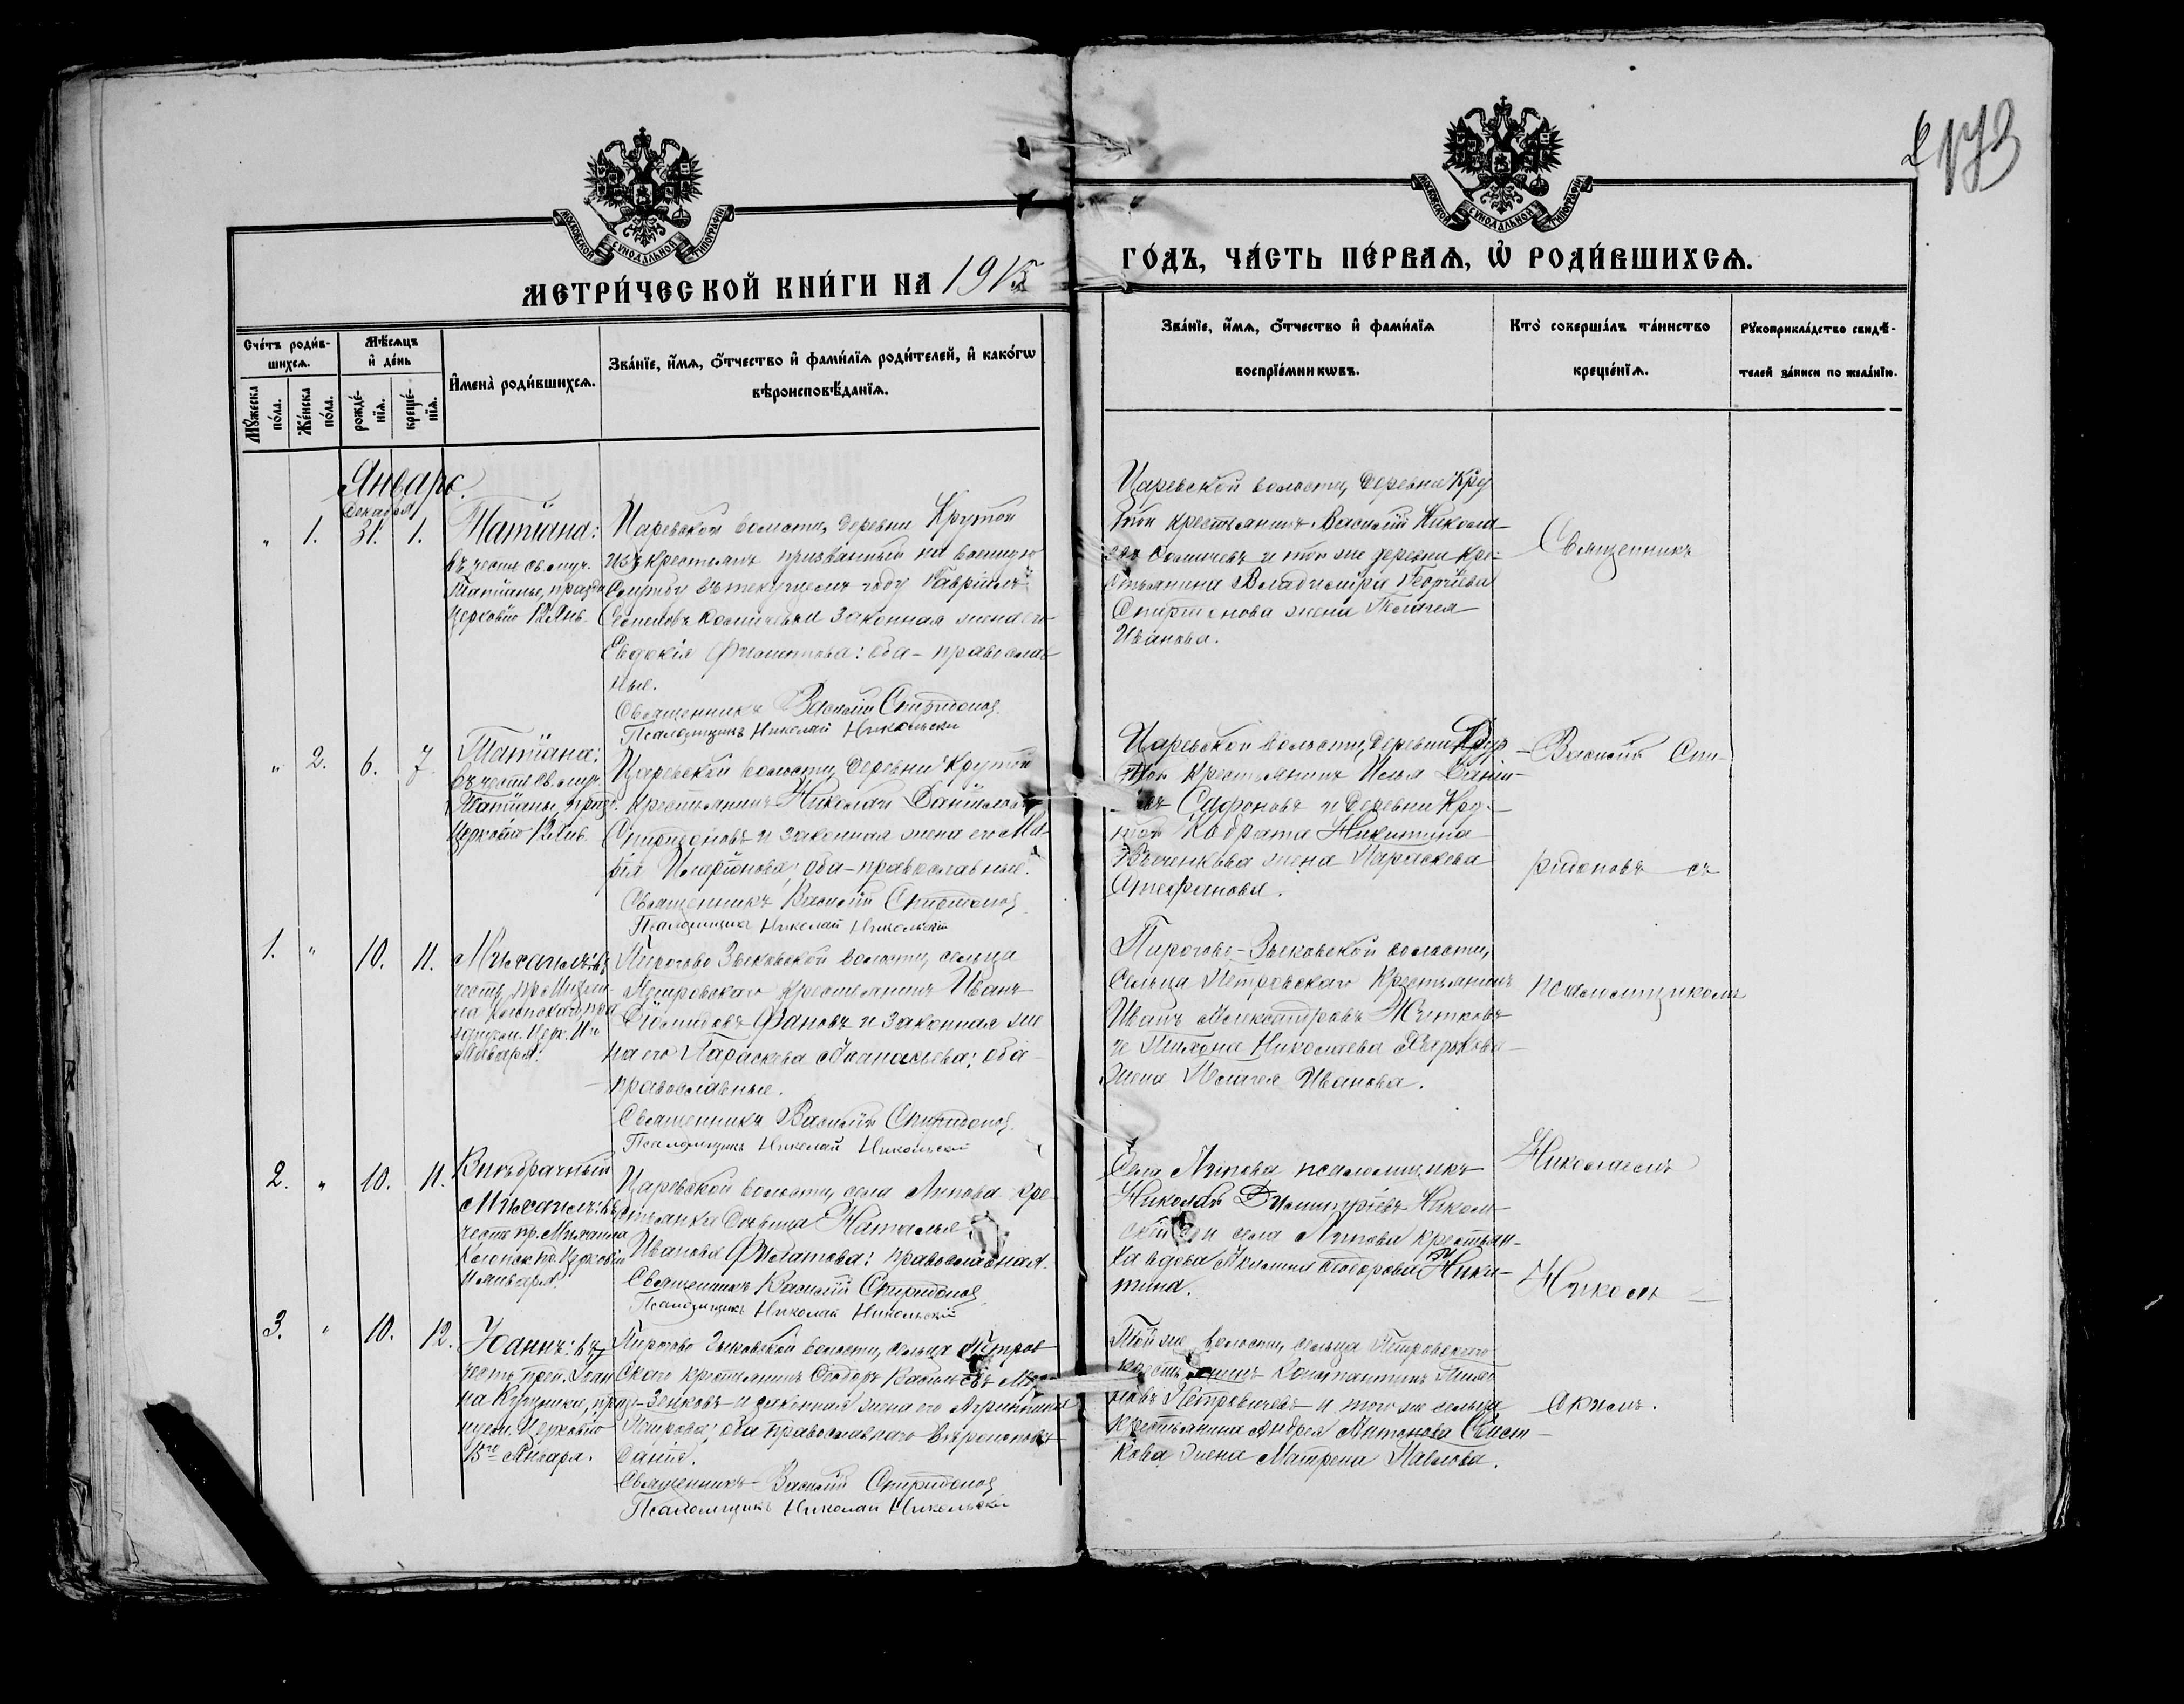 173
МОСКОВСКОЙ СѴНОДАЛЬНОЙ ТИПОГРАФІИ
МОСКОВСКОЙ СѴНОДАЛЬНОЙ ТИПОГРАФІИ
МЕТРИ́ЧЕСКОЙ КНИ́ГИ НА 1915
ГО́ДЪ, ЧА́СТЬ ПЕ́РВАѦ, Ѡ҆ РОДИ́ВШИХСѦ.
Сче́тъ роди́в-
шихсѧ.
Мꙋ́жеска
по́ла.
Же́нска
по́ла.
Мѣ́сѧцъ
и҆ де́нь
рожде́-
нїѧ.
креще́-
нїѧ.
И҆мена̀ роди́вшихсѧ.
Зва́нїе, и҆́мѧ, ѻ҆́тчество и҆ фами́лїѧ роди́телей, и҆ како́гѡ
вѣроисповѣ́данїѧ.
Зва́нїе, и҆́мѧ, ѻ҆́тчество и҆ фами́лїѧ
воспрїе́мникѡвъ.
Кто̀ соверша́лъ та́инство
креще́нїѧ.
Рꙋкоприкла́дство свидѣ́-
телей за́писи по жела́нїю.
Январь.
Декабря
" 1. 31. 1.
Татіана:
въ честь св. муч.
Татіаны, празд.
Церковію 12 Янв.
Царевской волости, деревни Крутой
изъ крестьянъ призванный на военную
службу въ текущемъ году Гавріилъ
законная жена его
Евдокія Филиппова: оба – православ
ные.
Священникъ Василій Спиридонов
Псаломщикъ Николай Никольскій
Царевской волости, деревни Кру
той крестьянинъ Василій Никола-
евъ и той же деревни кре-
стьянина Владиміра Георгіева
жена Пелагея
Иванова.
Священникъ
" 2. 6. 7.
Татіана:
въ честь св. муч.
Татіаны, празд.
Церковію 12 Янв.
Царевской волости, деревни Крутой
крестьянинъ Николай Даніиловъ
Спиридоновъ и законная жена его Ма-
рія Иларіонова; оба – православные.
Священникъ Василій Спиридонов
Псаломщикъ Николай Никольскій
Царевской волости, деревни Кру-
той крестьянинъ Илья Даніи-
ловъ Сафоновъ и деревни Кру-
той Никитина
жена Параскева
Василій Спи-
ридоновъ съ
1. " 10. 11.
Михаилъ: въ
честь пр. Михаи-
ла
Января.
Пирогово-Зыковской волости, сельца
Петровскаго крестьянинъ Иванъ
и законная же
на его Параскева Афанасьева; оба
православные.
Священникъ Василій Спиридонов
Псаломщикъ Николай Никольскій
Пирогово-Зыковской волости,
сельца Петровскаго крестьянинъ
Иванъ Александровъ
и Николаева
жена Пелагея Иванова.
псаломщикомъ
2. " 10. 11.
Внѣбрачный
Михаилъ: въ
честь пр. Михаила
Церковію
11 Января.
Царевской волости, села Липова кре-
стьянка дѣвица Наталья
Иванова Филатова: православная.
Священникъ Василій Спиридонов
Псаломщикъ Николай Никольскій
Села Липова псаломщикъ
Николай Димитріевъ Николь-
скій и села Липова крестьян-
ка вдова Ѳеодорова Ники-
тина.
Николаемъ
Николь-
3. " 10. 12.
Іоаннъ: въ
честь преп. Іоан
на Кущника, праз-
нуем. Церковію
15го Января.
Пирогово Зыковской волости, сельца Петров
скаго крестьянинъ Ѳеодоръ Васильевъ
и законная жена его Агриппина
Петрова; оба православнаго вѣроисповѣ
данія.
Священникъ Василій Спиридонов
Псаломщикъ Николай Никольскій
Той же волости, сельца Петровскаго
крестьянинъ Константинъ
и того же сельца
крестьянина Андрея Антонова
жена Матрена Павлова.
скимъ.